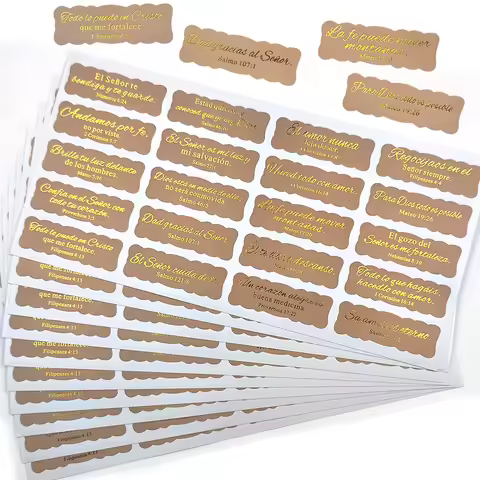 Todo lo puedo en Cristo
que me fortalece.
Dad gracias al Señor.
Salmo 107:1
La fe puede mover
montañas.
Para Dios todo es posible
Mateo 19:26
El Señor te
bendiga y te guarde.
Números 6:24
Andamos por fe,
no por vista.
2 Corintios 5:7
Brille tu luz delante
de los hombres.
Mateo 5:16
Confía en el Señor con
todo tu corazón.
Proverbios 3:5
Todo lo puedo en Cristo
que me fortalece.
Filipenses 4:13
Estad quietos y
conoced que yo soy
Salmo 46:10
El Señor es mi luz y
mi salvación.
Salmo 27:1
Dios está en medio de ella;
no será conmovida
Salmo 46:5
Dad gracias al Señor.
Salmo 107:1
El Señor cuida de
Salmo 121:5
El amor nunca
con amor.
La fe puede mover
montañas.
descanso.
Un corazón alegre es
buena medicina
Proverbios 17:22
Regocijaos en el
Señor siempre.
Filipenses 4:4
Para Dios todo es posible
Mateo 19:26
El gozo del
Señor es mi fortaleza.
Nehemías 8:10
Todo lo que hagáis,
hacedlo con amor.
1 Corintios 16:14
Su amor es eterno
que me fortalece.
Filipenses 4:13
que me fortalece.
Filipenses 4:13
que me fortalece.
Filipenses 4:13
que me fortalece.
Filipenses 4:13
Filipenses 4:13
Filipenses 4:13
Filipenses 4:13